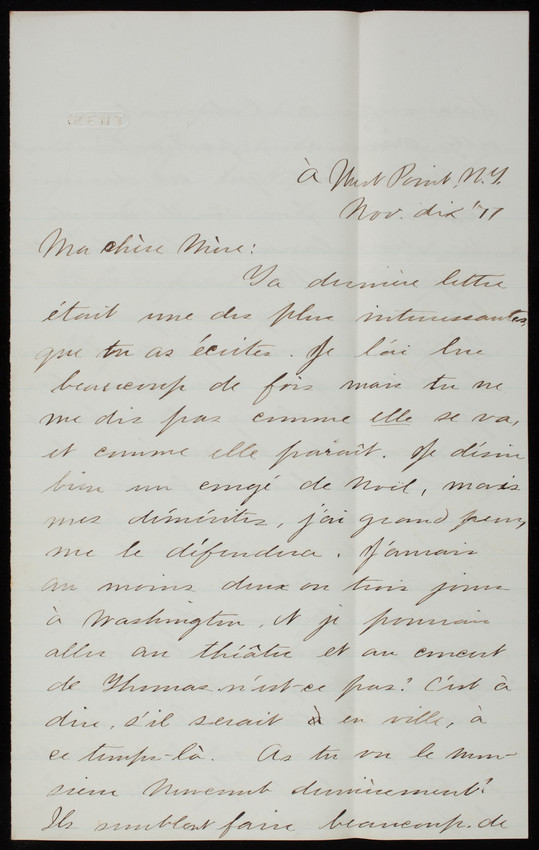 à West Point, N.Y.
Nov. dix "77
Ma chère Mère:
Ta dernière lettre
était une des plus interessantes,
que tu as écrites. Je l'ai lue
beaucoup de fois mais tu ne
me dis pas comme elle se va,
et comme elle paraît. Je désire
bien un congé de Noël, mais
mes démérites, j'ai grand peur,
me le défendera. J'aurais
au moins deux ou trois jours
à Washington, et je pourrais
aller au théâtre et au concert
de Thomas n'est-ce pas? C'est à
dire, s'il serait en ville, à
ce temps-là. As tu vu le mon-
sieur dernièrement?
Ils semblent faire beaucoup de